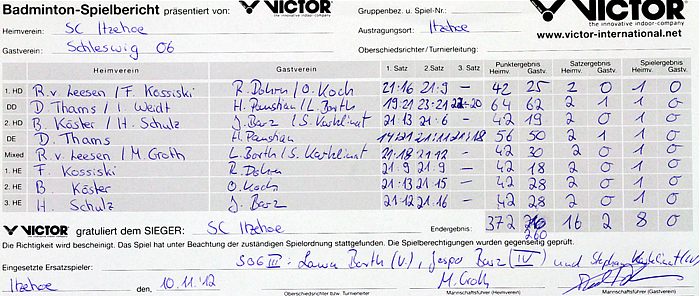 Badminton-Spielbericht präsentiert von: VICTOR the innovative indoor-company Gruppenbez. u. Spiel-Nr.: VICTOR the innovative indoor-company
Heimverein: SC Itzehoe Austragungsort: Itzehoe www.victor-international.net
Gastverein: Schleswig 06 Oberschiedsrichter/Turnierleitung:
Heimverein Gastverein 1. Satz 2. Satz 3. Satz Punktergebnis Heimv. Gastv. Satzergebnis Heimv. Gastv. Spielergebnis Heimv. Gastv.
1. HD R. v. Leesen / F. Kossiski R. Dohrn / O. Koch 21-16 21-9 – 42 25 2 0 1 0
DD D. Thams / I. Weidt H. Paustian / L. Barth 19-21 23-21 22-20 64 62 2 1 1 0
2. HD B. Köster / H. Schulz J. Barz / S. 21-13 21-6 – 42 19 2 0 1 0
DE D. Thams H. Paustian 14-21 21-11 21-18 56 50 2 1 1 0
Mixed R. v. Leesen / M. Groth L. Barth / S. 21-18 21-12 – 42 30 2 0 1 0
1. HE F. Kossiski R. Dohrn 21-9 21-9 – 42 18 2 0 1 0
2. HE B. Köster O. Koch 21-13 21-15 – 42 28 2 0 1 0
3. HE H. Schulz J. Barz 21-12 21-16 – 42 28 2 0 1 0
VICTOR gratuliert dem SIEGER: SC Itzehoe Endergebnis: 372 260 16 2 8 0
Die Richtigkeit wird bescheinigt. Das Spiel hat unter Beachtung der zuständigen Spielordnung stattgefunden. Die Spielberechtigungen wurden gegenseitig geprüft.
Eingesetzte Ersatzspieler: SO6 III - Laura Barth (V), Jesper Barz (IV) und Stephan
Itzehoe den, 10.11.'12 M. Groth
Oberschiedsrichter bzw. Turnierleitung Mannschaftsführer (Heimverein) Mannschaftsführer (Gastverein)